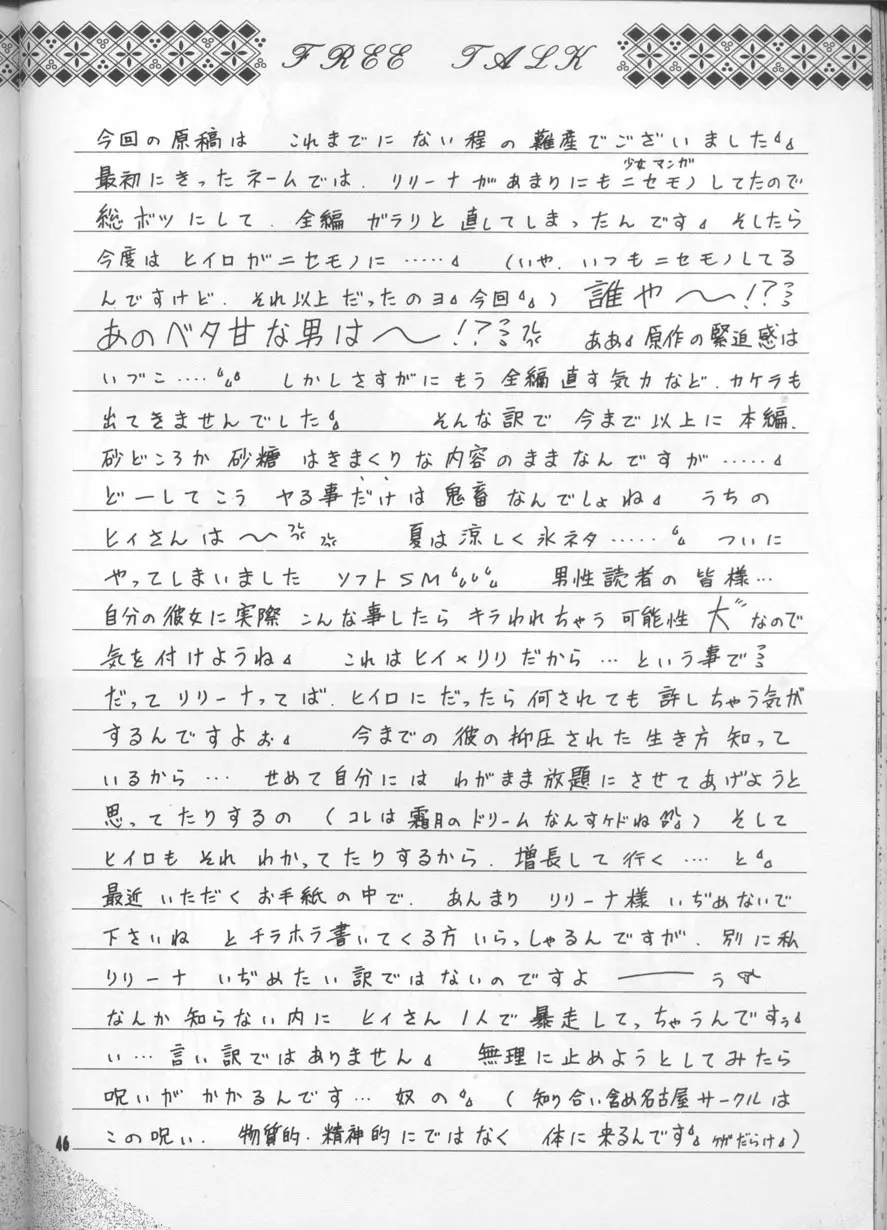 FREE TALK
今回の原稿は これまでに ない程の 難産でございました
少女マンガ
最初にきったネームでは、リリーナがあまりにもニセモノしてたので
総ボツにして、全編 ガラリと直してしまったんです そしたら
今度は ヒイロがニセモノに …… (いや、いつもニセモノしてる
んですけど、それ以上だったのヨ 今回) 誰や〜!?
あのベタ甘な男は〜!? ああ 原作の緊迫感は
いづこ…… しかしさすがにもう 全編直す気力など、カケラも
出てきませんでした。 そんな訳で 今まで以上に 本編、
砂どころか 砂糖 はきまくりな内容のままなんですが……
どーしてこう ヤる事だけは 鬼畜なんでしょね うちの
ヒイさんは〜 夏は涼しく氷ネタ…… ついに
やってしまいました ソフトSM 男性読者の 皆様…
自分の彼女に実際 こんな事したら キラわれちゃう 可能性 大 なので
気を付けようね これはヒイ×リリだから … という事で
だって リリーナってば、ヒイロにだったら何されても 許しちゃう気が
するんですよぉ 今までの 彼の抑圧された 生き方 知って
いるから … せめて自分には わがまま放題にさせてあげようと
思ってたりするの (コレは 霜月のドリームなんすケドね) そして
ヒイロも それ わかってたりするから、増長して行く …… と
最近 いただく お手紙の中で、あんまり リリーナ様 いぢめないで
下さいね とチラホラ書いてくる方 いらっしゃるんですが、別に私
リリーナ いぢめたい訳ではないのですよ ── う
なんか 知らない内に ヒイさん 1人で 暴走してっちゃうんですぅ
い… 言い訳ではありません 無理に止めようとしてみたら
呪いが かかるんです… 奴の (知り合い含め名古屋サークルは
この呪い、物質的・精神的にではなく 体に来るんです ケガだらけ)
46